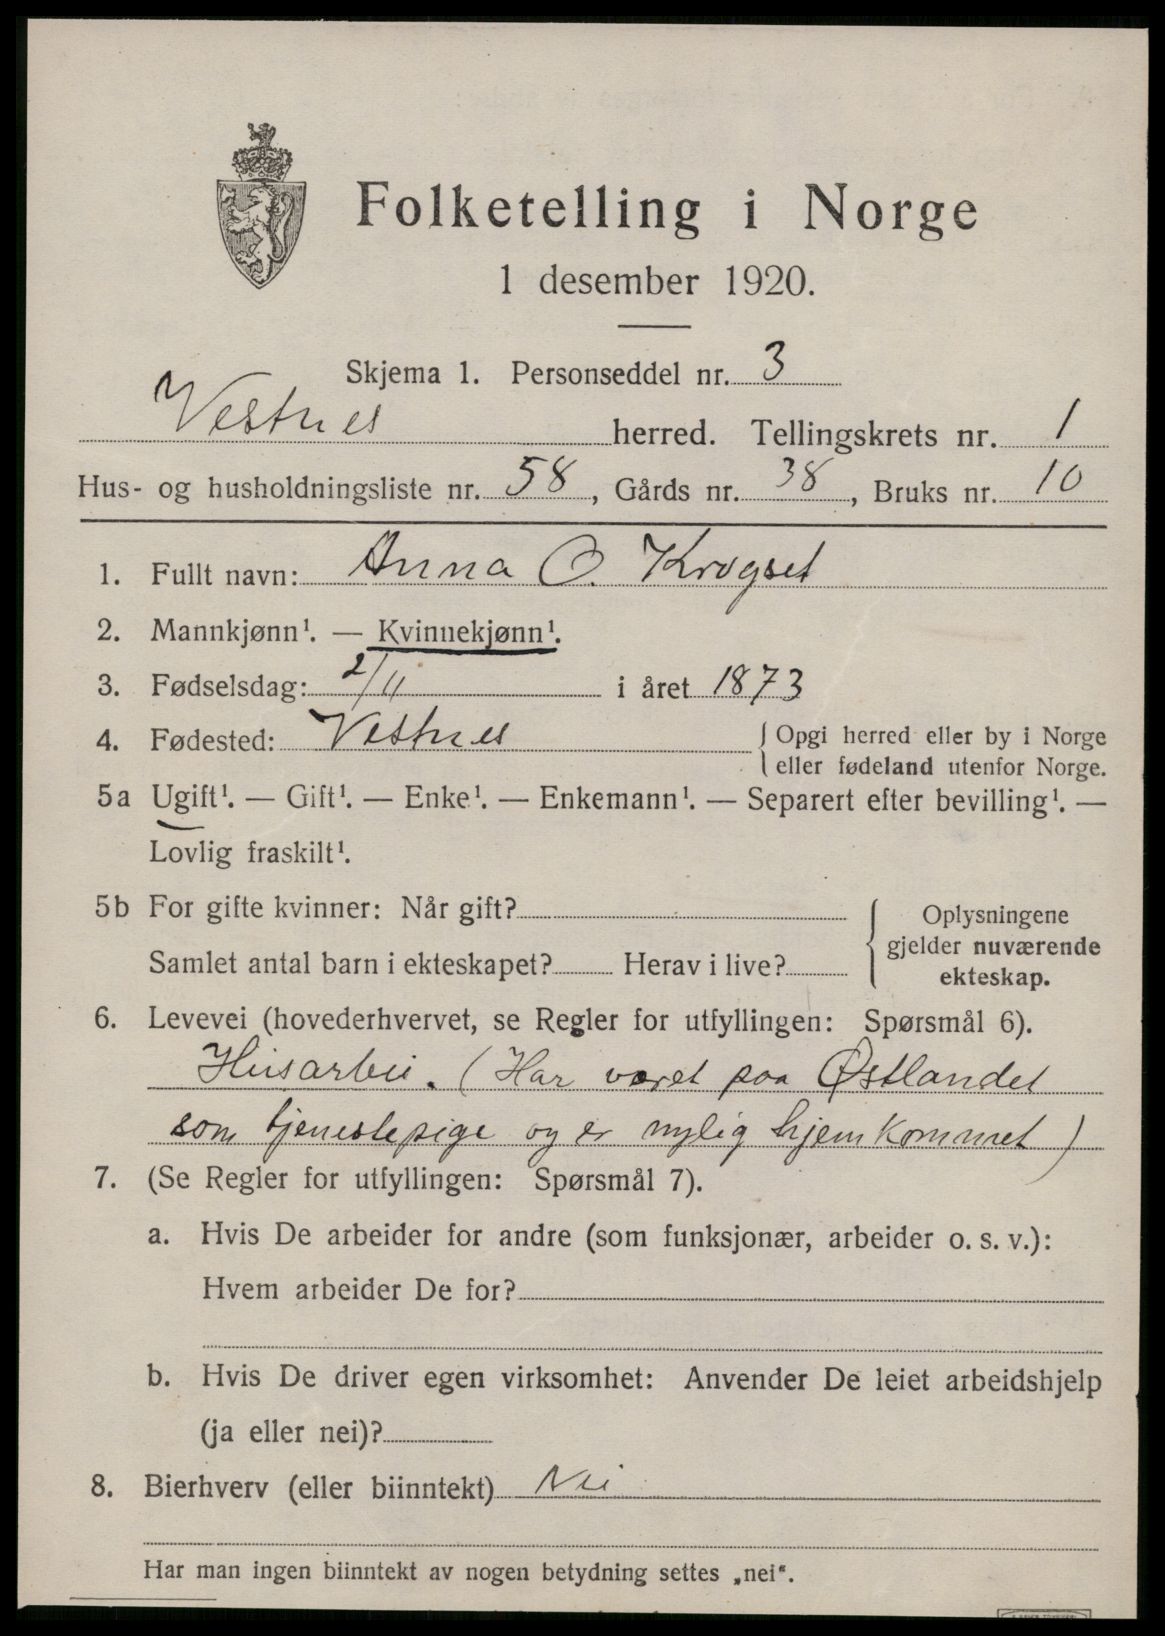 Folketelling i Norge
1 desember 1920.
Skjema 1. Personseddel nr. 3
Vestnes herred. Tellingskrets nr. 1
Hus- og husholdningsliste nr. 58, Gårds nr. 38, Bruks nr. 10
1. Fullt navn: Anna O. Krogset
2. Mannkjønn¹. — Kvinnekjønn¹.
3. Fødselsdag: 2/11 i året 1873
4. Fødested: Vestnes { Opgi herred eller by i Norge
eller fødeland utenfor Norge.
5a Ugift¹. — Gift¹. — Enke¹. — Enkemann¹. — Separert efter bevilling¹. —
Lovlig fraskilt¹.
5b For gifte kvinner: Når gift?
Samlet antal barn i ekteskapet? Herav i live?
{ Oplysningene
gjelder nuværende
ekteskap.
6. Levevei (hovederhvervet, se Regler for utfyllingen: Spørsmål 6).
Husarbei. (Har været paa Østlandet
som tjenestepige og er nylig hjemkommet)
7. (Se Regler for utfyllingen: Spørsmål 7).
a. Hvis De arbeider for andre (som funksjonær, arbeider o. s. v.):
Hvem arbeider De for?
b. Hvis De driver egen virksomhet: Anvender De leiet arbeidshjelp
(ja eller nei)?
8. Bierhverv (eller biinntekt) Nei
Har man ingen biinntekt av nogen betydning settes „nei“.